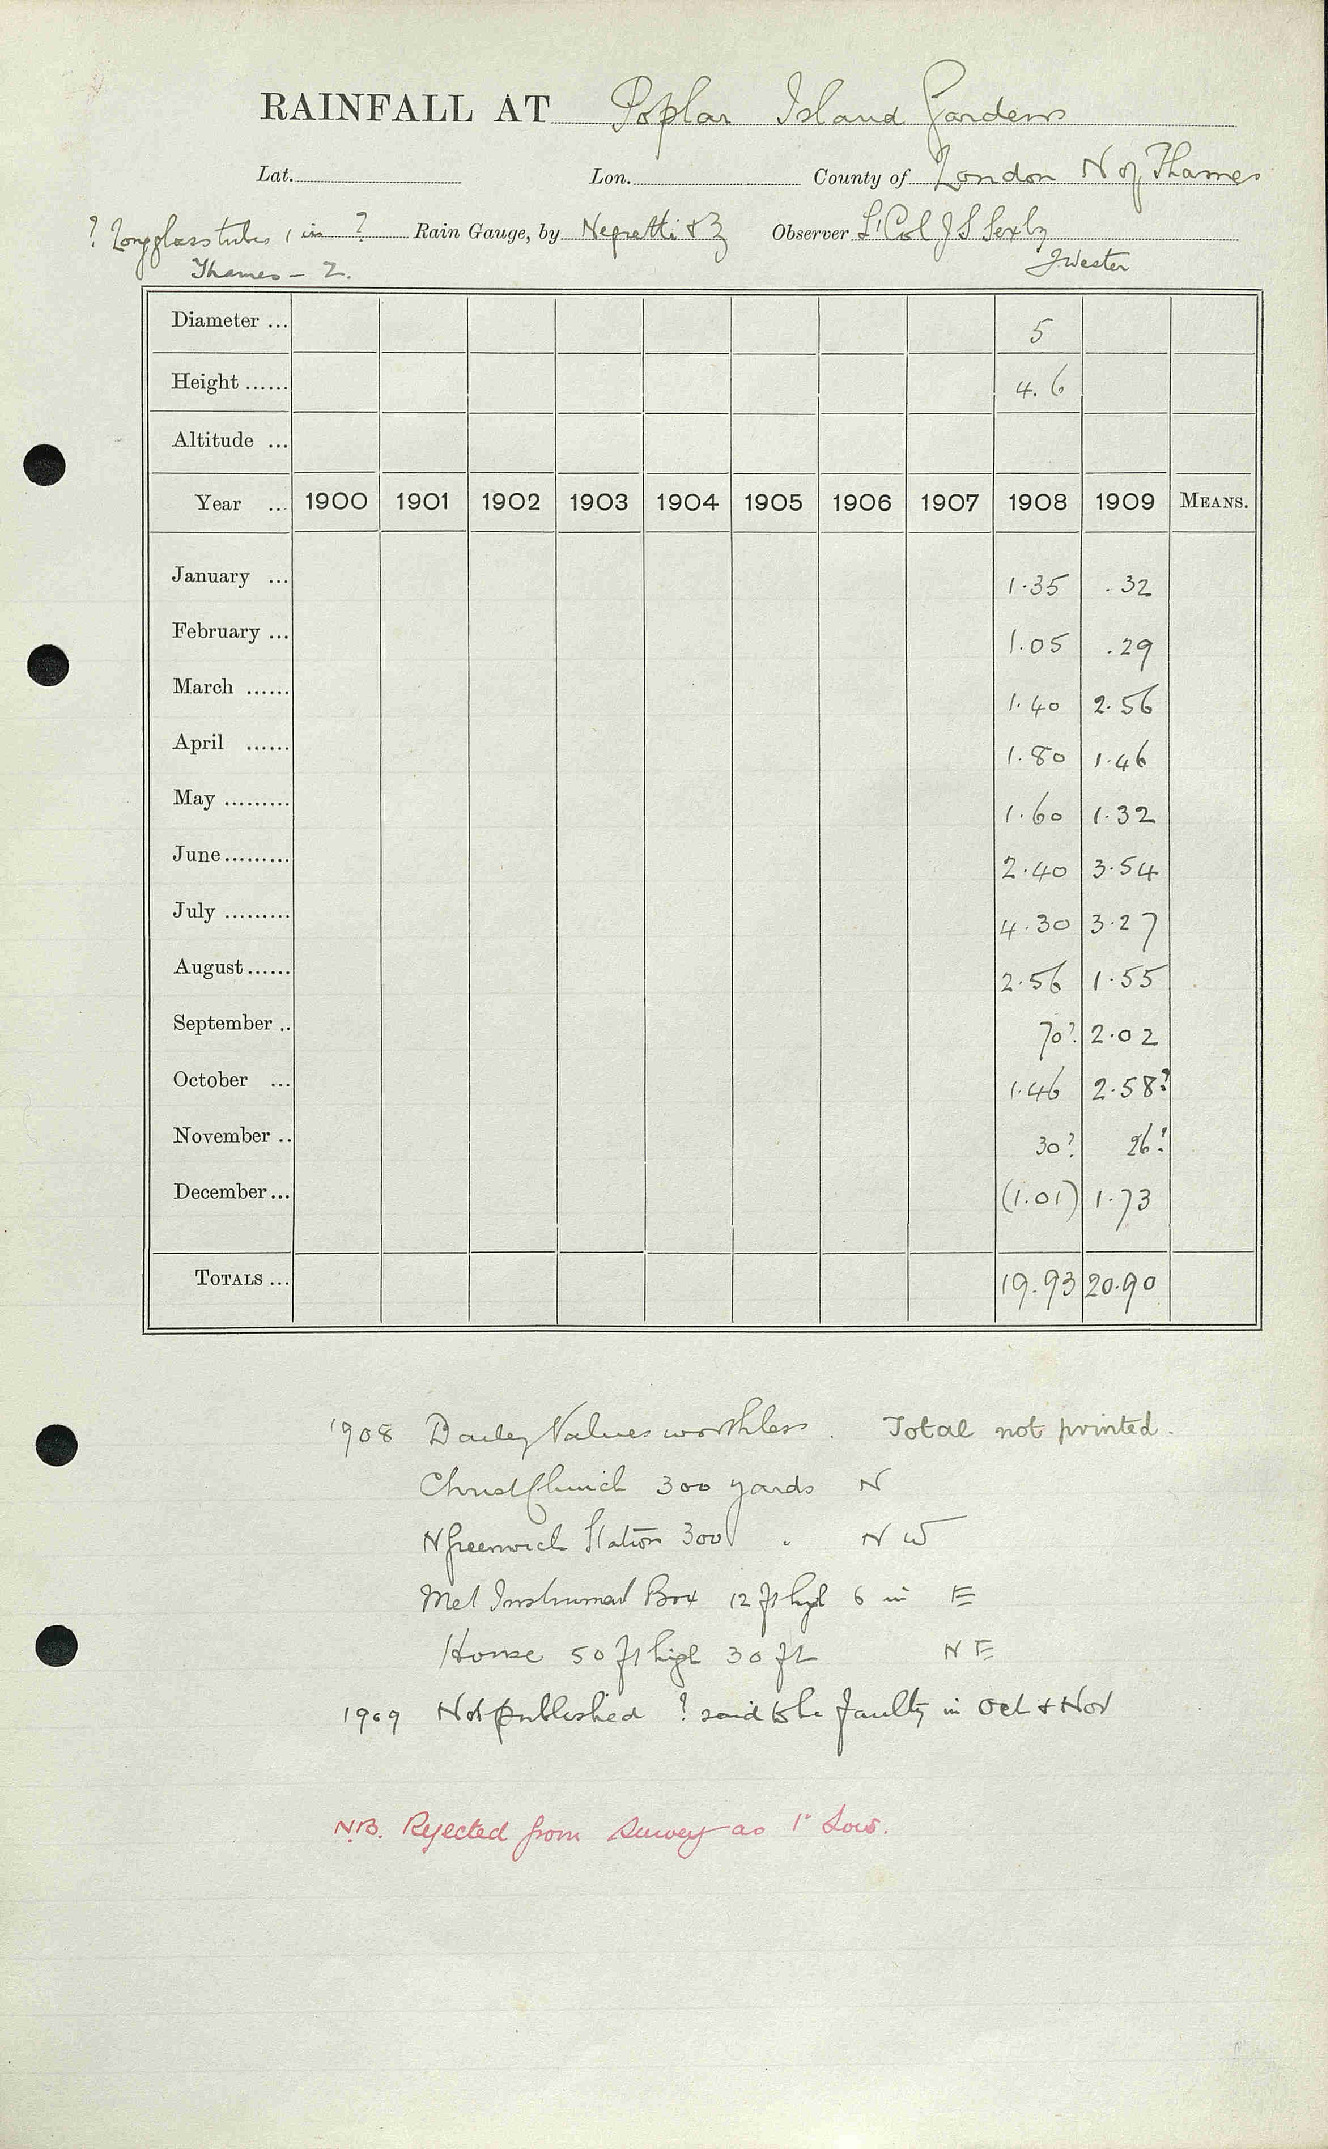 RAINFALL AT Poplar Island Gardens
Lat. Lon. County of London N of Thames
? Long glass tubes 1 in ? Rain Gauge, by Negretti & Z Observer Lt Col J S Sexby
Thames - 2. J. Wester
Diameter ... 5
Height ...... 4.6
Altitude ...
Year ... 1900 1901 1902 1903 1904 1905 1906 1907 1908 1909 MEANS.
January ... 1.35 .32
February ... 1.05 .29
March ...... 1.40 2.56
April ...... 1.80 1.46
May ......... 1.60 1.32
June ......... 2.40 3.54
July ......... 4.30 3.27
August ...... 2.56 1.55
September .. 70? 2.02
October ... 1.46 2.58?
November .. 30? 26?
December ... (1.01) 1.73
TOTALS ... 19.93 20.90
1908 Daily Values worthless. Total not printed.
Christ Church 300 yards N
N Greenwich Station 300 " N W
Met Instrument Box 12 ft high 6 in E
House 50 ft high 30 ft N E
1909 Not published ? said to be faulty in Oct & Nov
N.B. Rejected from Survey as 1" Low.